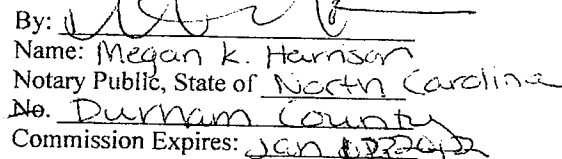 By:
Name: Megan K. Harrison
Notary Public, State of North Carolina
No. Durham County
Commission Expires: Jan